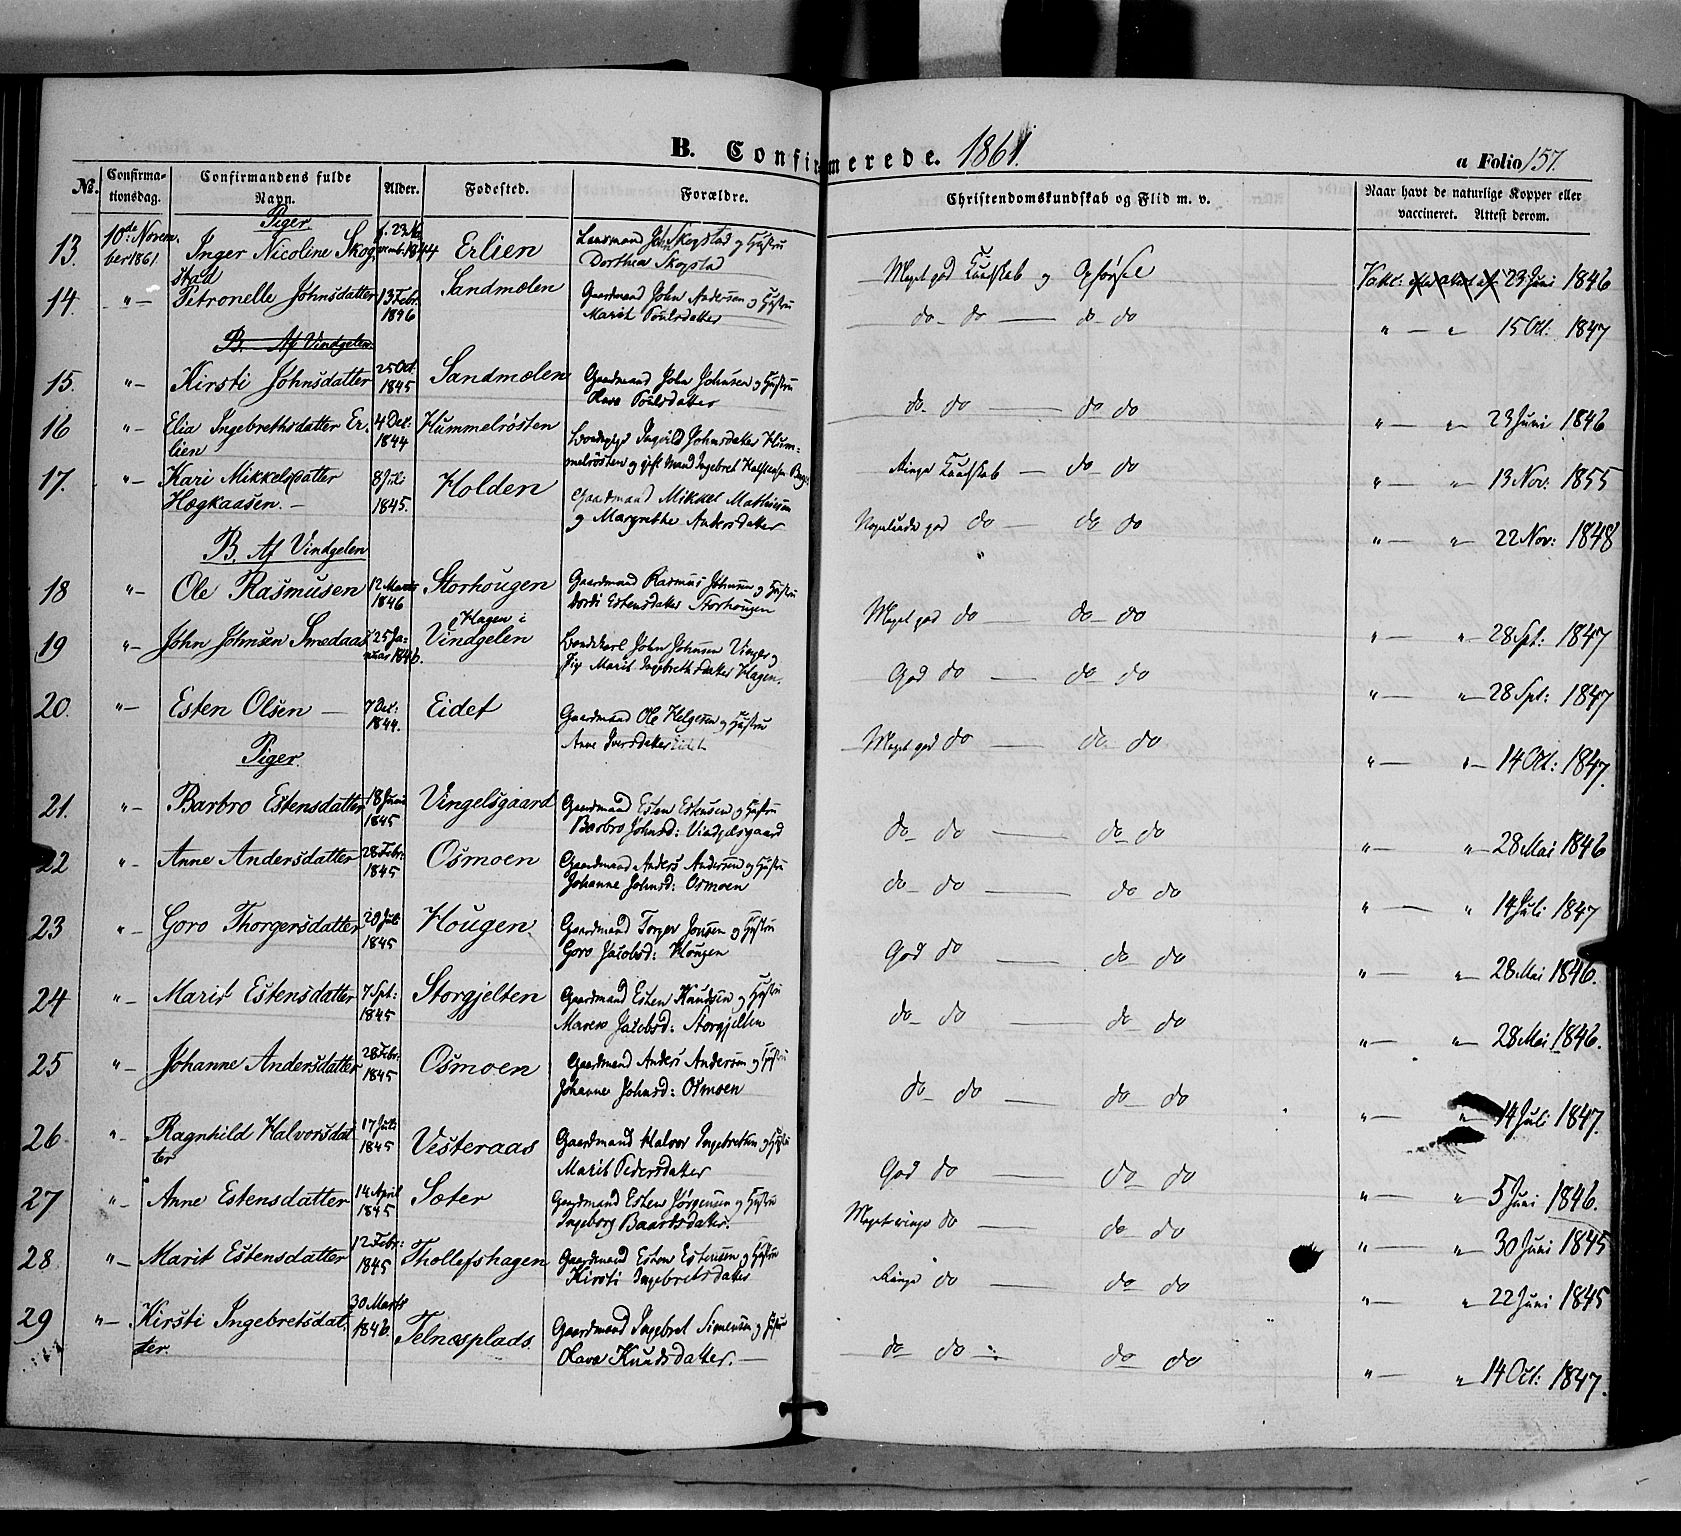 B. Confirmerede. 1861. a Folio 157.
No. Confirmationsdag. Confirmandens fulde Navn. Alder. Fødested. Forældre. Christendomskundskab og Flid m. v. Naar havt de naturlige Kopper eller vaccineret. Attest derom.
Piger
13. 10de Novem- Inger Nicoline Skog- f. 23 No- Erlien Lensmand John Skogstad og Hustru Meget god Kundskab og Opførsel Vakc: 23 Juni 1846
ber 1861. stad vemb. 1844 Dorthea Skogstad
14. " — Petronelle Johnsdatter 13 Febr. Sandmælen Gaardmand John Andersen og Hustru do- do — do- do " — " 15 Oct: 1847
1846 Marit Poulsdatter
B. Af Vindgelen.
15. " — Kirsti Johnsdatter 25 Oct. Sandmælen Gaardmand John Johnsen og Hustru do- do — do do " — " 23 Juni 1846
1845 Poulsdatter
16 " — Elia Ingebrethsdatter Er- 4 Dec. Hummelrösten Ingvild Johnsdatter Hum- Ringe Kundskab — do- do " — " 13 Nov: 1855
lien 1844 melrösten og gift Mand Ingebret
17. " — Kari Mikkelsdatter 8 Juli Holden Gaardmand Mikkel Mathiesen Nogenlunde god do — do do " — " 22 Nov: 1848
Hægkaasen. — 1845. og Margrethe Andersdatter
B. Af Vindgelen
18 " — Ole Rasmusen 12 Marts Storhougen Gaardmand Rasmus Johnsen og Hustru Meget god do — do- do " — " 28 Spt: 1847
1846 Dordi Estensdatter Storhougen
19 " — John Johnsen Smedaas 25 Ja- Hagen i Vindgelen John Johnsen Vinger og God do — do- do " — " 28 Spt: 1847
nuar 1846. Pige Marit Ingebrethsdatter Hagen.
20. " — Esten Olsen — 7 Dec: Eidet Gaardmand Ole Helgesen og Hustru Meget god do — do- do " — " 14 Oct: 1847.
1844. Anne Iversdatter Eidet
Piger
21. " — Barbro Estensdatter 18 Juni Vingelsgaard Gaardmand Esten Estensen og Hustru do- do — do- do " — " 28 Mai 1846
1845 Barbro Johnsd: Vindgelsgaard
22 " — Anne Andersdatter 28 Febr: Osmoen Gaardmand Anders Andersen og Hustru do- do — do do " — " 14 Juli 1847
1845 Johanne Johnsd: Osmoen
23 " — Goro Thorgersdatter 20 Juli Hougen Gaardmand Torger Jonsen og Hustru God do — do- do " — " 28 Mai 1846.
1845 Goro Jacobsd: Hougen
24 " — Marit Estensdatter 7 Spt: Storgjelten Gaardmand Esten Knudsen og Hustru do- do — do- do " — " 28 Mai 1846.
1845 Maren Jacobsd: Storgjelten
25 " — Johanne Andersdatter 28 Febr: Osmoen Gaardmand Anders Andersen og Hustru do- do — do- do " — " 14 Juli 1847.
1845 Johanne Johnsd: Osmoen
26 " — Ragnhild Halvorsdat- 17 Juli Vesteraas Gaardmand Halvor Ingebretsen og Hustru God do — do- do " — " 5 Juni 1846.
ter 1845 Marit Pedersdatter
27 " — Anne Estensdatter 14 April Sæter Gaardmand Esten Jørgensen og Hustru Meget ringe do — do- do " — " 30 Juni 1845
1845 Ingeborg Baardsdatter.
28 " — Marit Estensdatter 12 Febr: Thollefshagen Gaardmand Esten Estensen og Hustru Ringe do — do- do " — " 22 Juni 1845
1845 Kirsti Ingebretsdatter
29 " — Kirsti Ingebretsdat- 30 Marts Telnæsplads. Gaardmand Ingebret Simensen og Hustru do- do — do do " — " 14 Oct: 1847.
ter. 1846. Knudsdatter. —